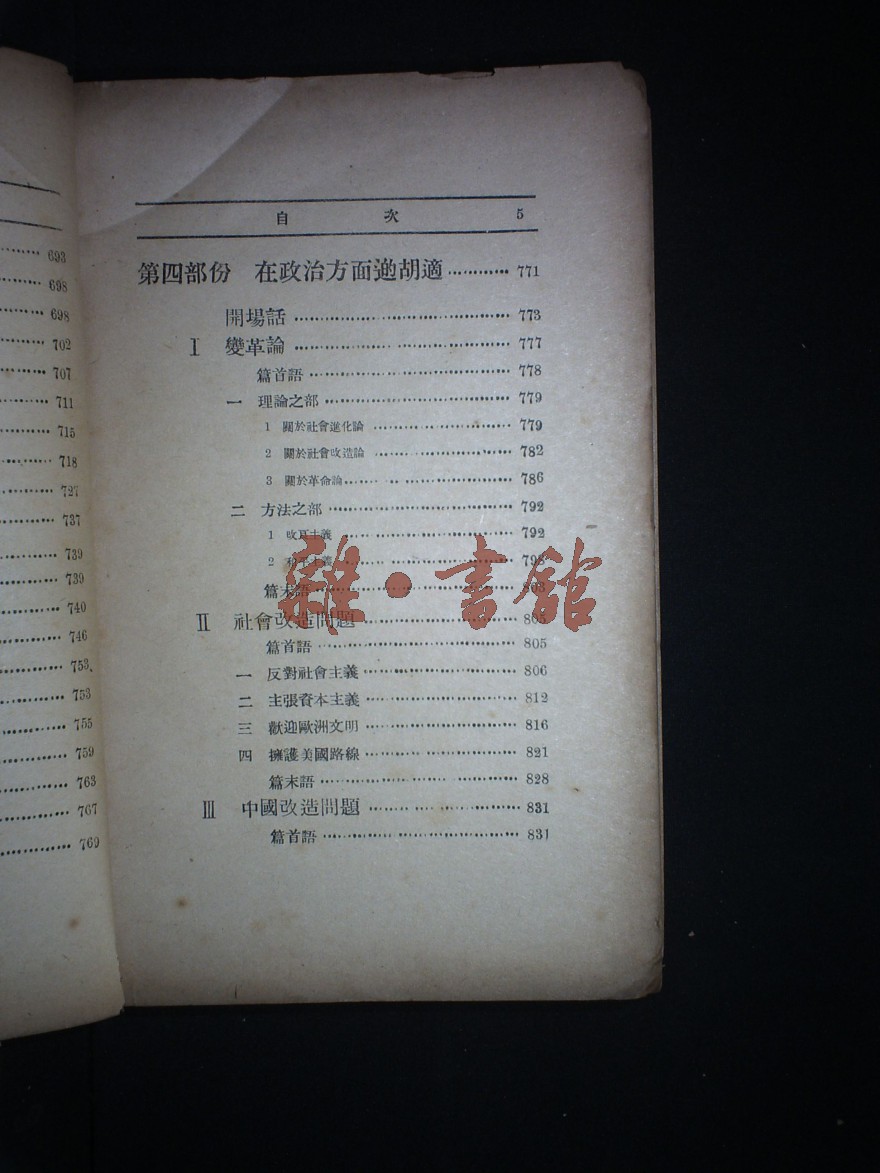 693
698
698
702
707
711
715
718
727
737
739
739
740
746
753
753
755
759
763
767
769
目 次 5
第四部份 在政治方面逇胡適 ………… 771
開場話 ………… 773
Ⅰ 變革論 ………… 777
篇首語 ………… 778
一 理論之部 ………… 779
1 關於社會進化論 ………… 779
2 關於社會改造論 ………… 782
3 關於革命論 ………… 786
二 方法之部 ………… 792
1 改良主義 ………… 792
2 和平主義 ………… 798
篇末語 ………… 803
Ⅱ 社會改造問題 ………… 805
篇首語 ………… 805
一 反對社會主義 ………… 806
二 主張資本主義 ………… 812
三 歡迎歐洲文明 ………… 816
四 擁護美國路線 ………… 821
篇末語 ………… 828
Ⅲ 中國改造問題 ………… 831
篇首語 ………… 831
雜·書舘